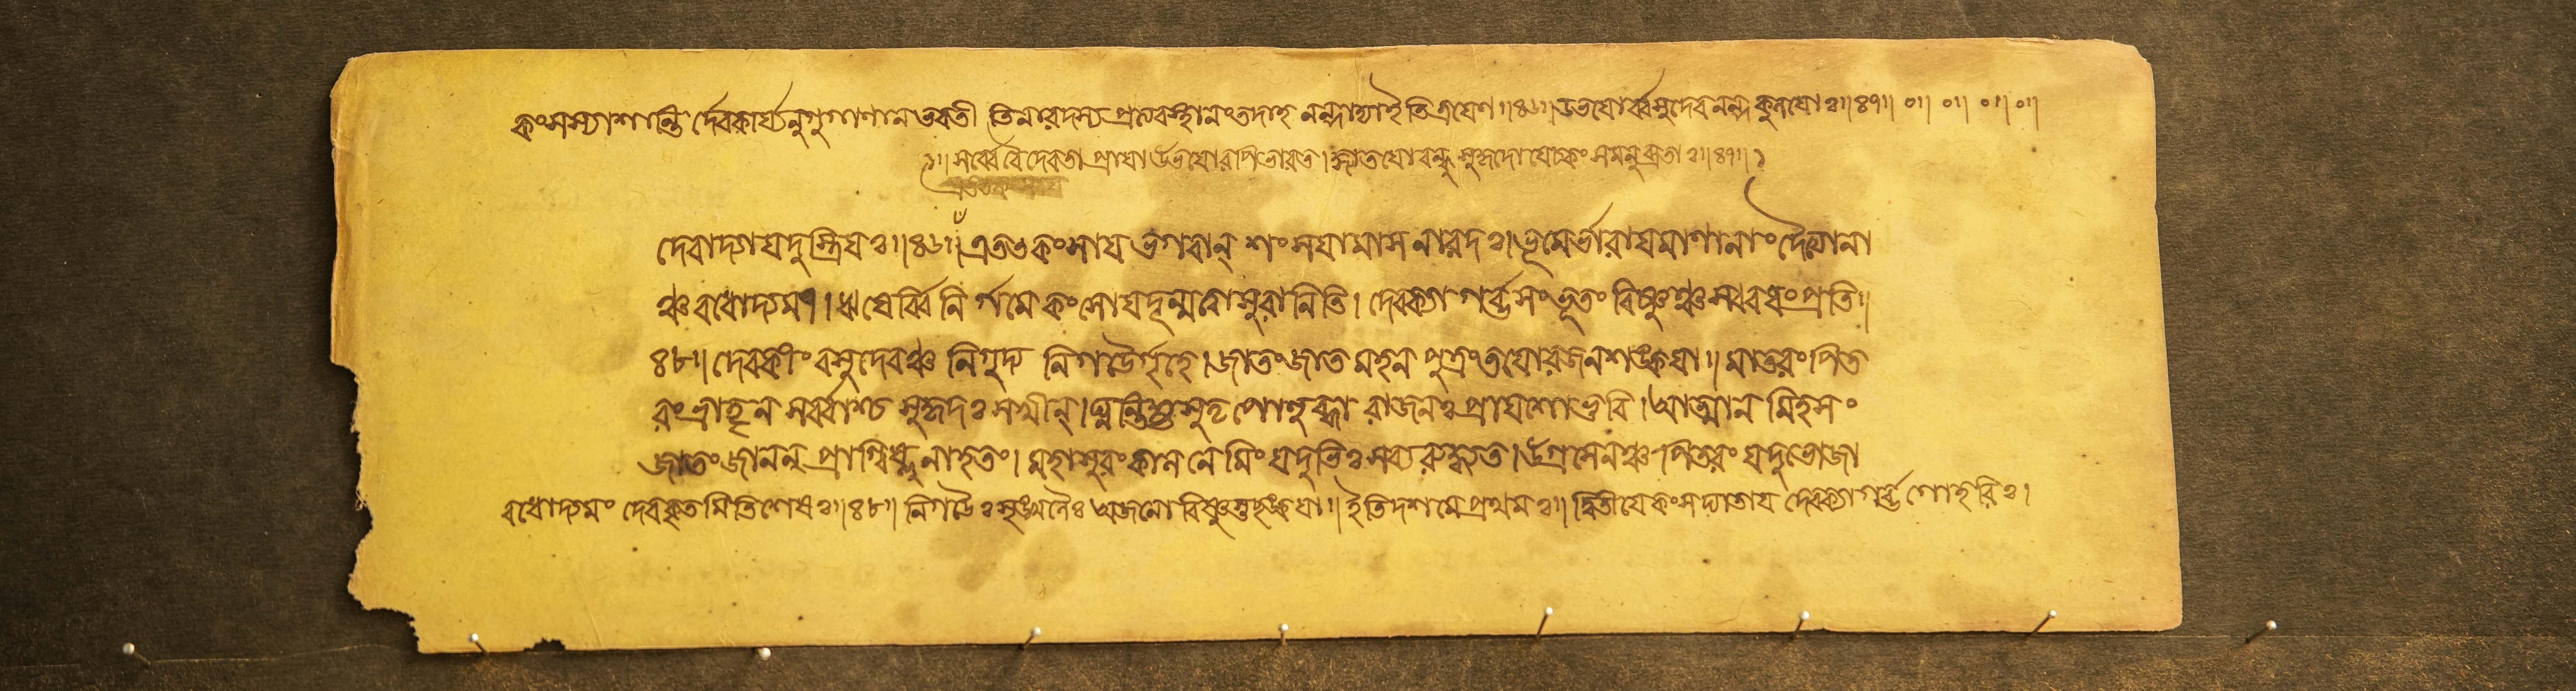 কংসস্যাশান্তি র্দেবকার্য্যনুগুণাশানভবতী তিনারদস্য প্রলবস্থানংতদাহ নন্দাদ্যাইতিত্রযেণ॥৪৬॥উভযোর্ব্বসুদেবনন্দকুলযোঃ॥৪৭॥ ০॥ ০॥ ০॥ ০॥
সর্ব্বেবৈদেবতা প্রাযাউভযোরপিভারত।জ্ঞাতযোবন্ধুসুহৃদোযেচকংসমনুব্রতাঃ॥৪৭॥
দেবাদ্যাযদুস্ত্রিযঃ॥৪৬॥এতৎকংসাযভগবান্ শংসযামাসনারদঃ।ভূমের্ভারাযমাণানাংদৈত্যানা
ঞ্চবধোদ্যমং।ঋষের্ব্বিনির্গমেকংসোযদূন্মত্বাসুরানিতি।দেবক্যাগর্ব্ভসংভূতংবিষ্ণুঞ্চস্ববধংপ্রতি॥
৪৮॥দেবকীংবসুদেবঞ্চ নিগৃহ্য নিগডৈর্গৃহে।জাতংজাতমহন পুত্রংতযোরজনশঙ্কযা॥মাতরংপিত
রংভ্রাতৃন সর্ব্বাংশ্চ সুহৃদঃসখীন্।ঘ্নন্তিহ্যসুতৃপোলুব্ধা রাজনঃপ্রাযশোভুবি।আত্মানমিহসং
জাতংজানন্ প্রাগ্বিষ্ণুনাহতং।মহাসুরংকালনেমিংযদুভিঃসব্যরুদ্ধ্যত।উগ্রসেনঞ্চপিতরংযদুভোজা
বধোদ্যমং দেবকৃতমিতিশেষঃ॥৪৮॥ নিগডৈঃশৃঙ্খলৈঃ অজনোবিষ্ণুস্তচ্ছঙ্কযা॥ইতিদশমেপ্রথমঃ॥দ্বিতীযেকংসঘাতায দেবক্যাগর্ব্ভগোহরিঃ।